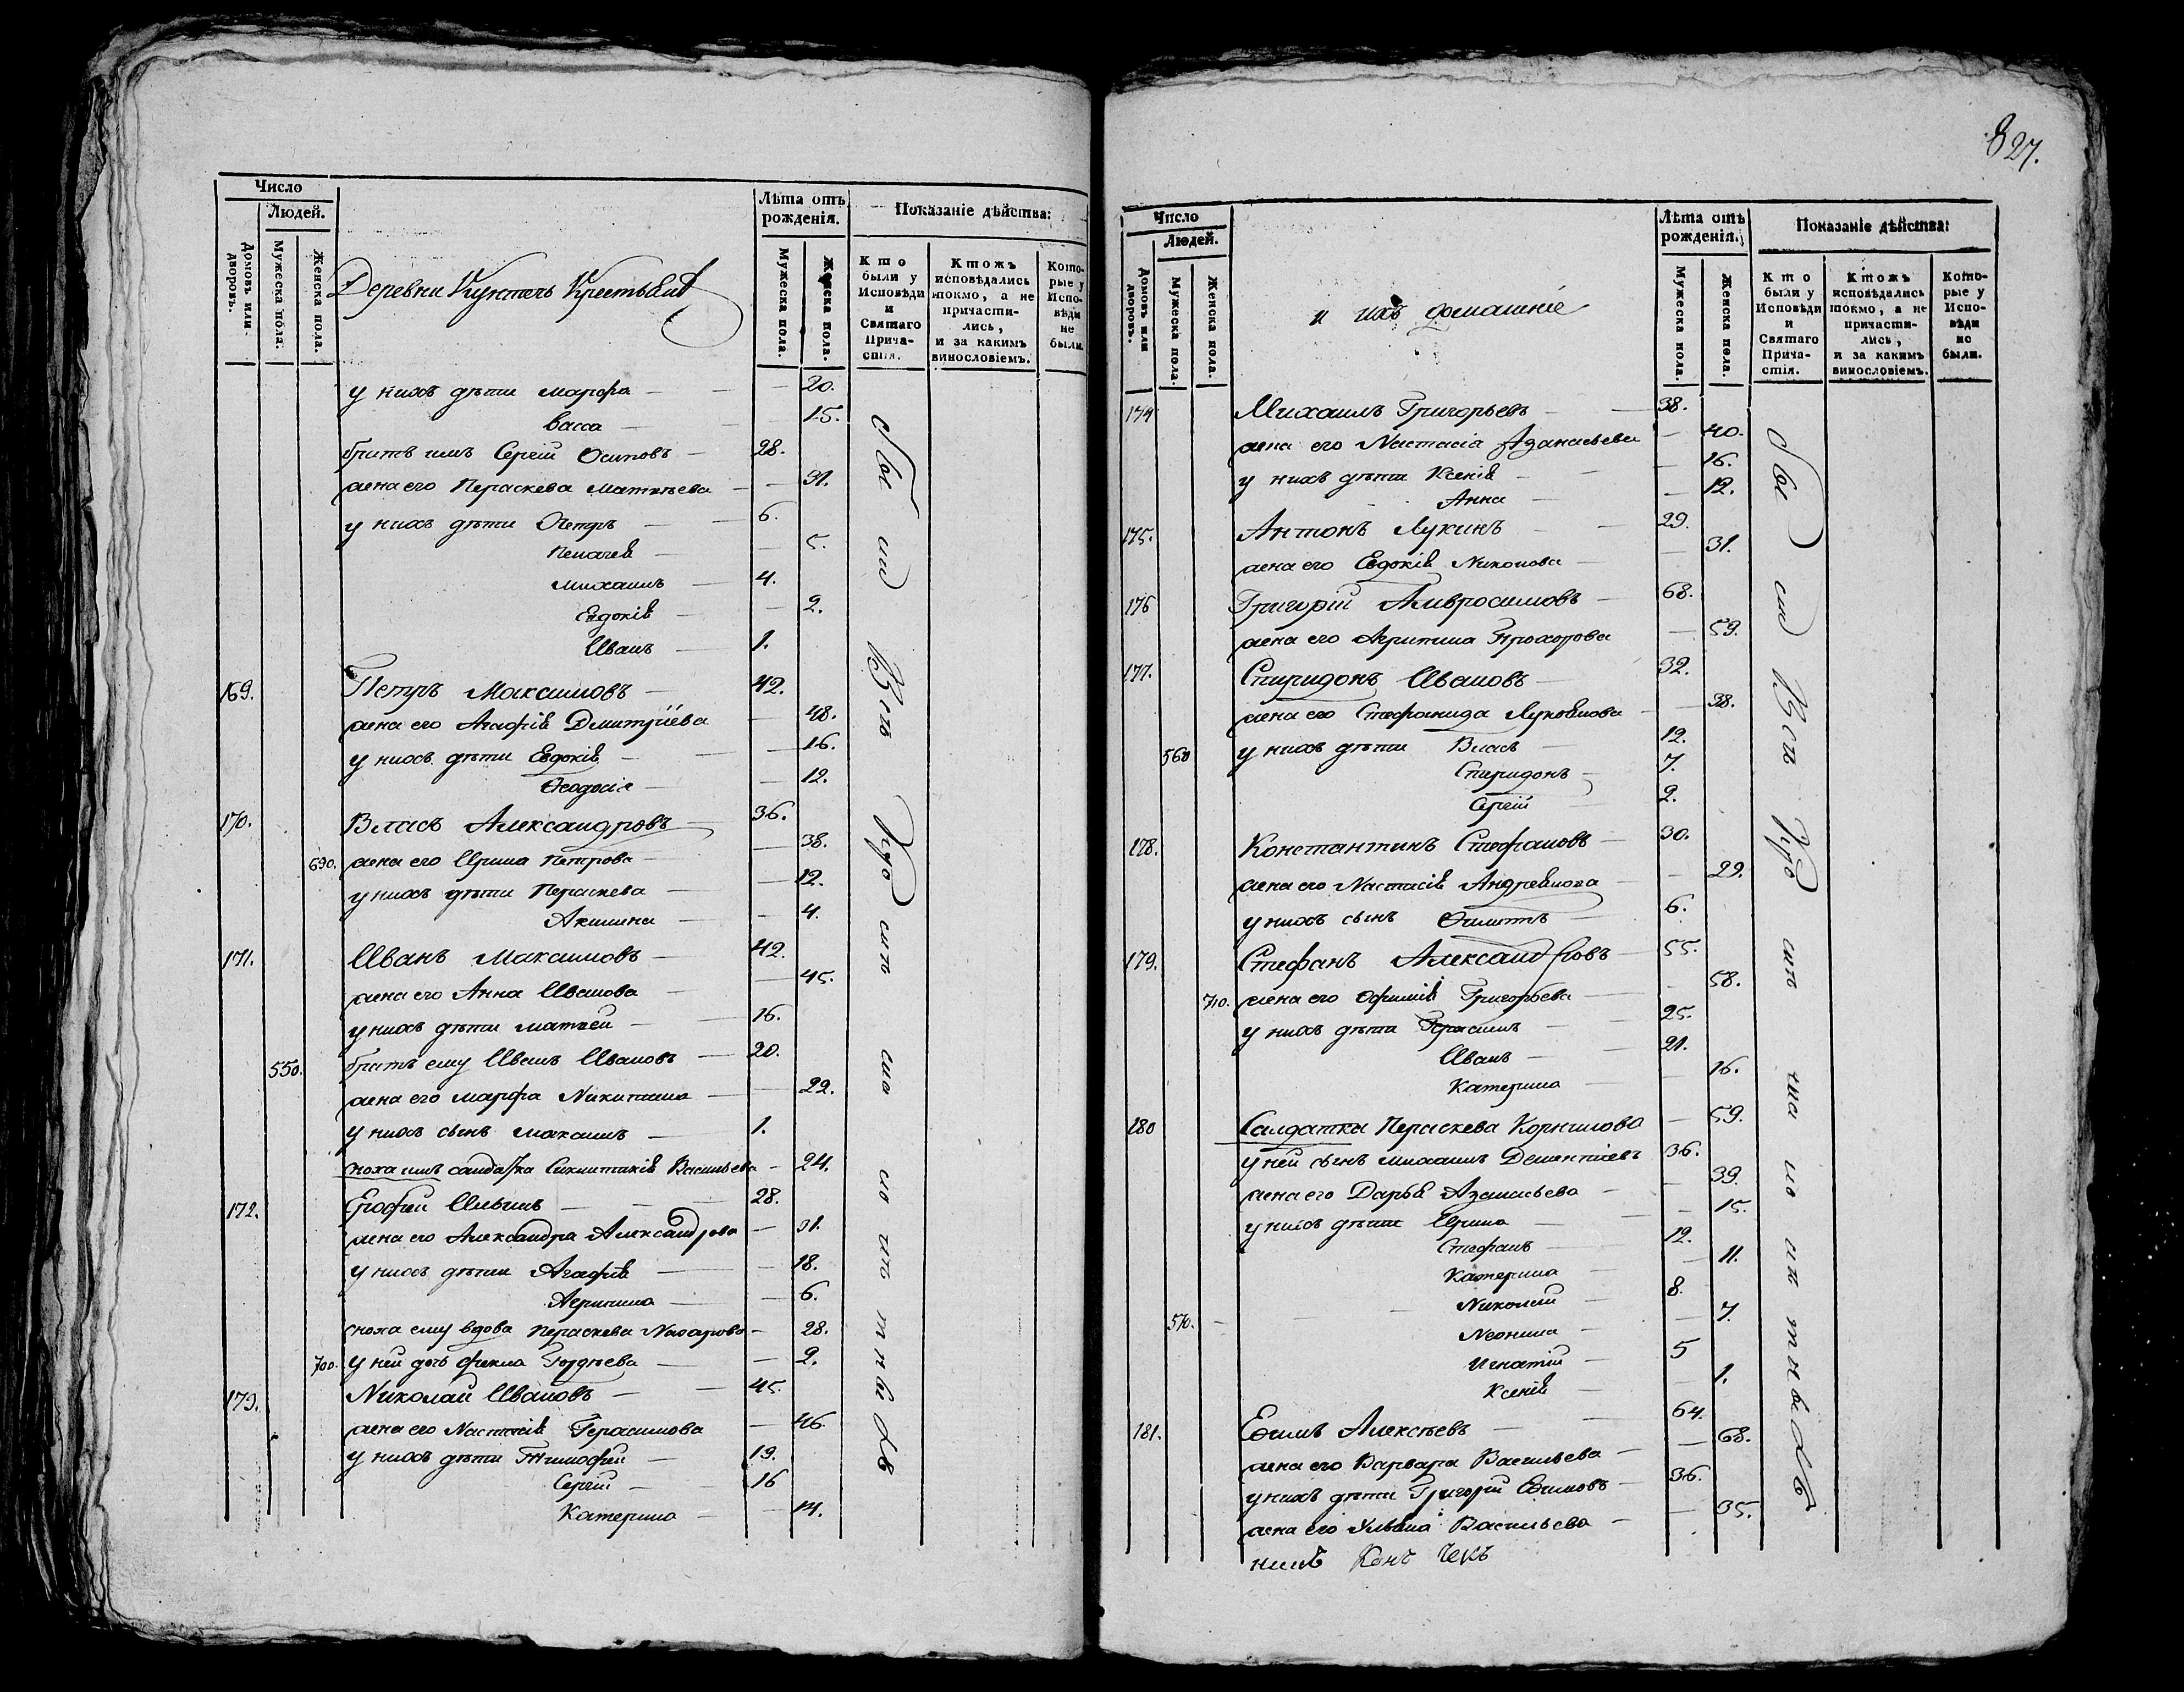 827.
Число
Людей.
Домовъ или дворовъ.
Мужеска пола.
Женска пола.
Деревни Крестьянъ
Лѣта отъ рожденія.
Мужеска пола.
Женска пола.
Показаніе дѣйства:
Кто были у Исповѣди и Святаго Причастія.
Ктожъ исповѣдались токмо, а не причастились, и за какимъ винословіемъ.
Которые у Исповѣди не были.
у нихъ дѣти Марфа — 20.
Васса — 15.
братъ имъ Сергій Осиповъ — 28.
жена его Параскева Матвѣева — 31.
у нихъ дѣти Петръ — 6.
5.
Михаилъ — 4.
Евдокія — 2.
Иванъ — 1.
169. Петръ Максимовъ — 42.
жена его Агафія Дмитріева — 48.
у нихъ дѣти Евдокія — 16.
Ѳеодосія — 12.
170. Власъ Александровъ — 36.
690. жена его Ирина Петрова — 38.
у нихъ дѣти Параскева — 12.
Акилина — 4.
171. Иванъ Максимовъ — 42.
жена его Анна Иванова — 45.
у нихъ дѣти Матвей — 16.
550. братъ ему Иванъ Ивановъ — 20.
жена его Марфа Никитина — 22.
у нихъ сынъ Максимъ — 1.
сноха имъ салдатка Васильева — 24.
172. Ерофей Ильинъ — 28.
жена его Александра Александрова — 31.
у нихъ дѣти Агафія — 18.
Агрипина — 6.
сноха ему вдова Параскева Назарова — 28.
700. у ней дочь Фекла Гордѣева — 2.
173. Николай Ивановъ — 45.
жена его Настасія Герасимова — 46.
у нихъ дѣти Тимофей — 19.
Сергій — 16
Катерина — 14.
Число
Людей.
Домовъ или дворовъ.
Мужеска пола.
Женска пола.
и ихъ домашніе
Лѣта отъ рожденія.
Мужеска пола.
Женска пола.
Показаніе дѣйства:
Кто были у Исповѣди и Святаго Причастія.
Ктожъ исповѣдались токмо, а не причастились, и за какимъ винословіемъ.
Которые у Исповѣди не были.
174 Михаилъ Григорьевъ — 38.
жена его Настасіа Афанасьева — 40.
у нихъ дѣти Ксенія — 16.
Анна — 12.
175. Антонъ Лукинъ — 29.
жена его Евдокія Никонова — 31.
176 Григорій Амвросимовъ — 68.
жена его Агрипина Прохорова — 59.
177. Спиридонъ Ивановъ — 32.
жена его Стефанида Лукоянова — 38.
560 у нихъ дѣти Власъ — 12.
Спиридонъ — 7.
Сергій — 2.
178. Константинъ Стефановъ — 30.
жена его Настасія Андреянова — 29.
у нихъ сынъ Филиппъ — 6.
179. Стефанъ Александровъ — 55.
710. жена его Офимія Григорьева — 58.
у нихъ дѣти Герасимъ — 25.
Иванъ — 21.
Катерина — 16.
180 Салдатка Параскева Корнилова — 59.
у ней сынъ Михаилъ Дементіевъ 36.
жена его Дарья Афанасьева — 39.
у нихъ дѣти Ирина — 15.
Стефанъ — 12.
Катерина — 11.
Николай — 8.
570. Неонила — 7.
Игнатій — 5
Ксенія — 1.
181. Ефимъ Алексѣевъ — 64.
жена его Варвара Васильева — 68.
у нихъ дѣти Григорій Ефимовъ — 36.
жена его Ульяна Васильева — 35.